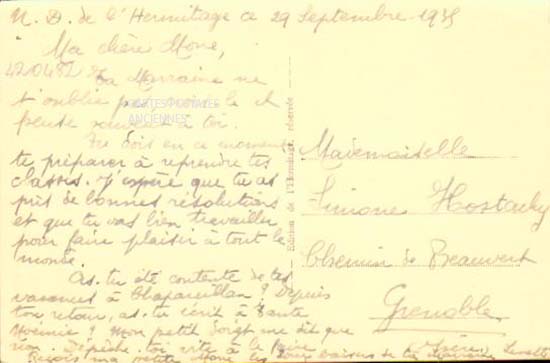 N. D. de l'Hermitage ce 29 Septembre 1935
Ma chère Mone,
420482
Ta Marraine ne
t'oublie pas et
CARTES POSTALES
ANCIENNES
pense souvent à toi.
Tu dois en ce moment
te préparer à reprendre tes
classes. J'espère que tu as
pris de bonnes résolutions
et que tu vas bien travailler
pour faire plaisir à tout le
monde.
As-tu été contente de tes
vacances à Chapareillan ? Depuis
ton retour, as-tu écrit à Tante
Noémie ? Mon petit doigt me dit que
non. Dépêche-toi vite à le faire.
Reçois ma petite Mone les bons baisers de ta
Edition de l'Hermitage, réservée
Mademoiselle
Simone Hostachy
Chemin de Beauvert
Grenoble
Isère